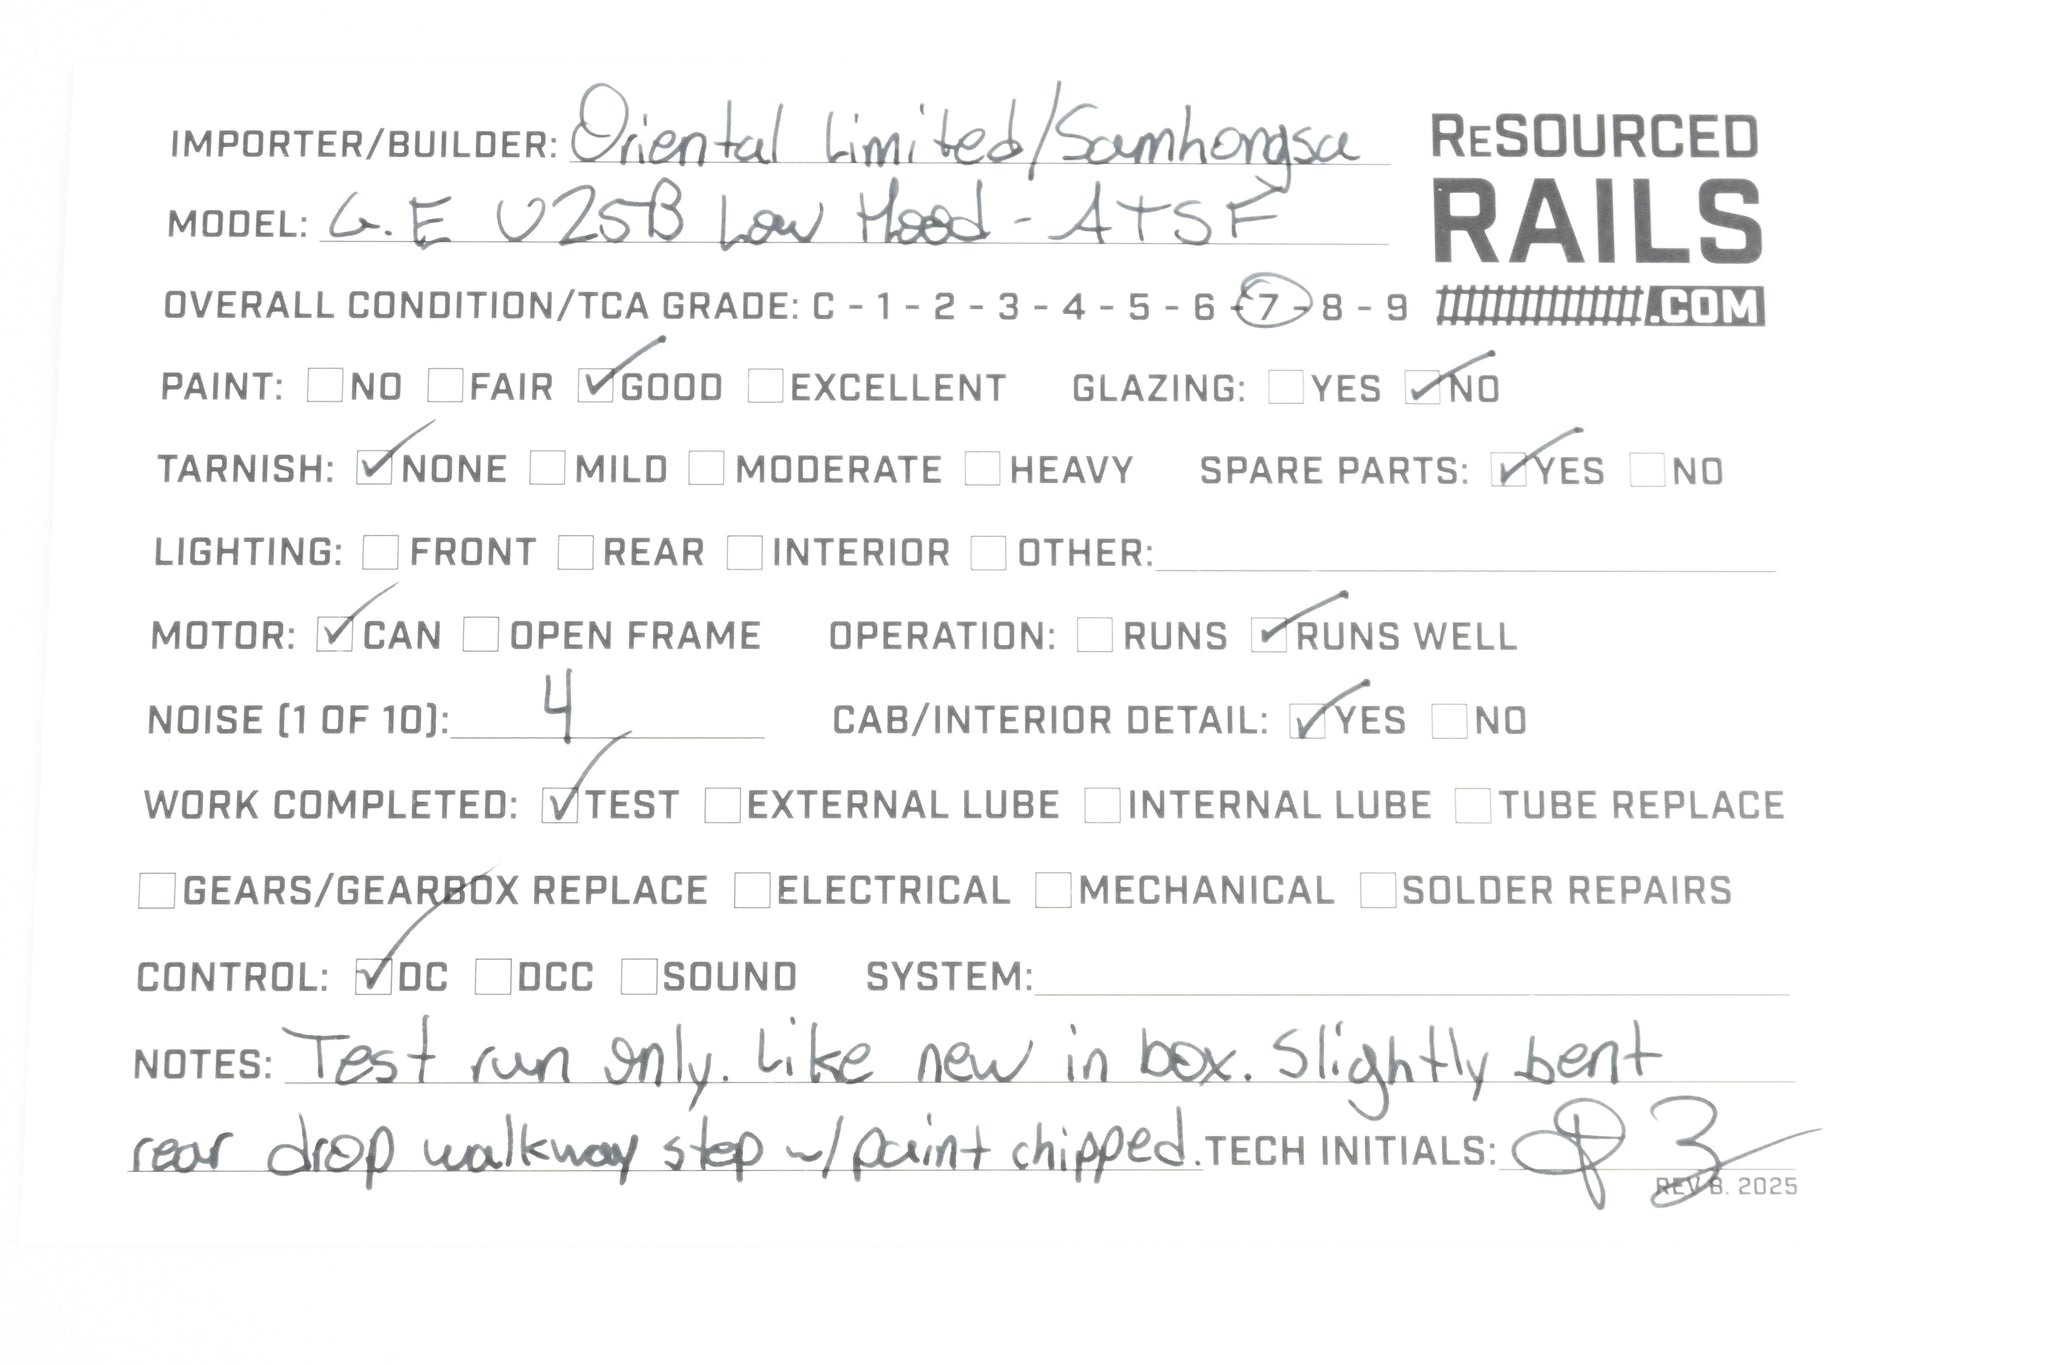 IMPORTER/BUILDER: Oriental Limited/Samhongsa
ReSOURCED
RAILS
.COM
MODEL: G.E U25B Low Hood - ATSF
OVERALL CONDITION/TCA GRADE: C - 1 - 2 - 3 - 4 - 5 - 6 - 7 - 8 - 9
PAINT: NO FAIR GOOD EXCELLENT GLAZING: YES NO
TARNISH: NONE MILD MODERATE HEAVY SPARE PARTS: YES NO
LIGHTING: FRONT REAR INTERIOR OTHER:
MOTOR: CAN OPEN FRAME OPERATION: RUNS RUNS WELL
NOISE (1 OF 10): 4 CAB/INTERIOR DETAIL: YES NO
WORK COMPLETED: TEST EXTERNAL LUBE INTERNAL LUBE TUBE REPLACE
GEARS/GEARBOX REPLACE ELECTRICAL MECHANICAL SOLDER REPAIRS
CONTROL: DC DCC SOUND SYSTEM:
NOTES: Test run only. Like new in box. Slightly bent
rear drop walkway step w/paint chipped. TECH INITIALS:
REV B. 2025